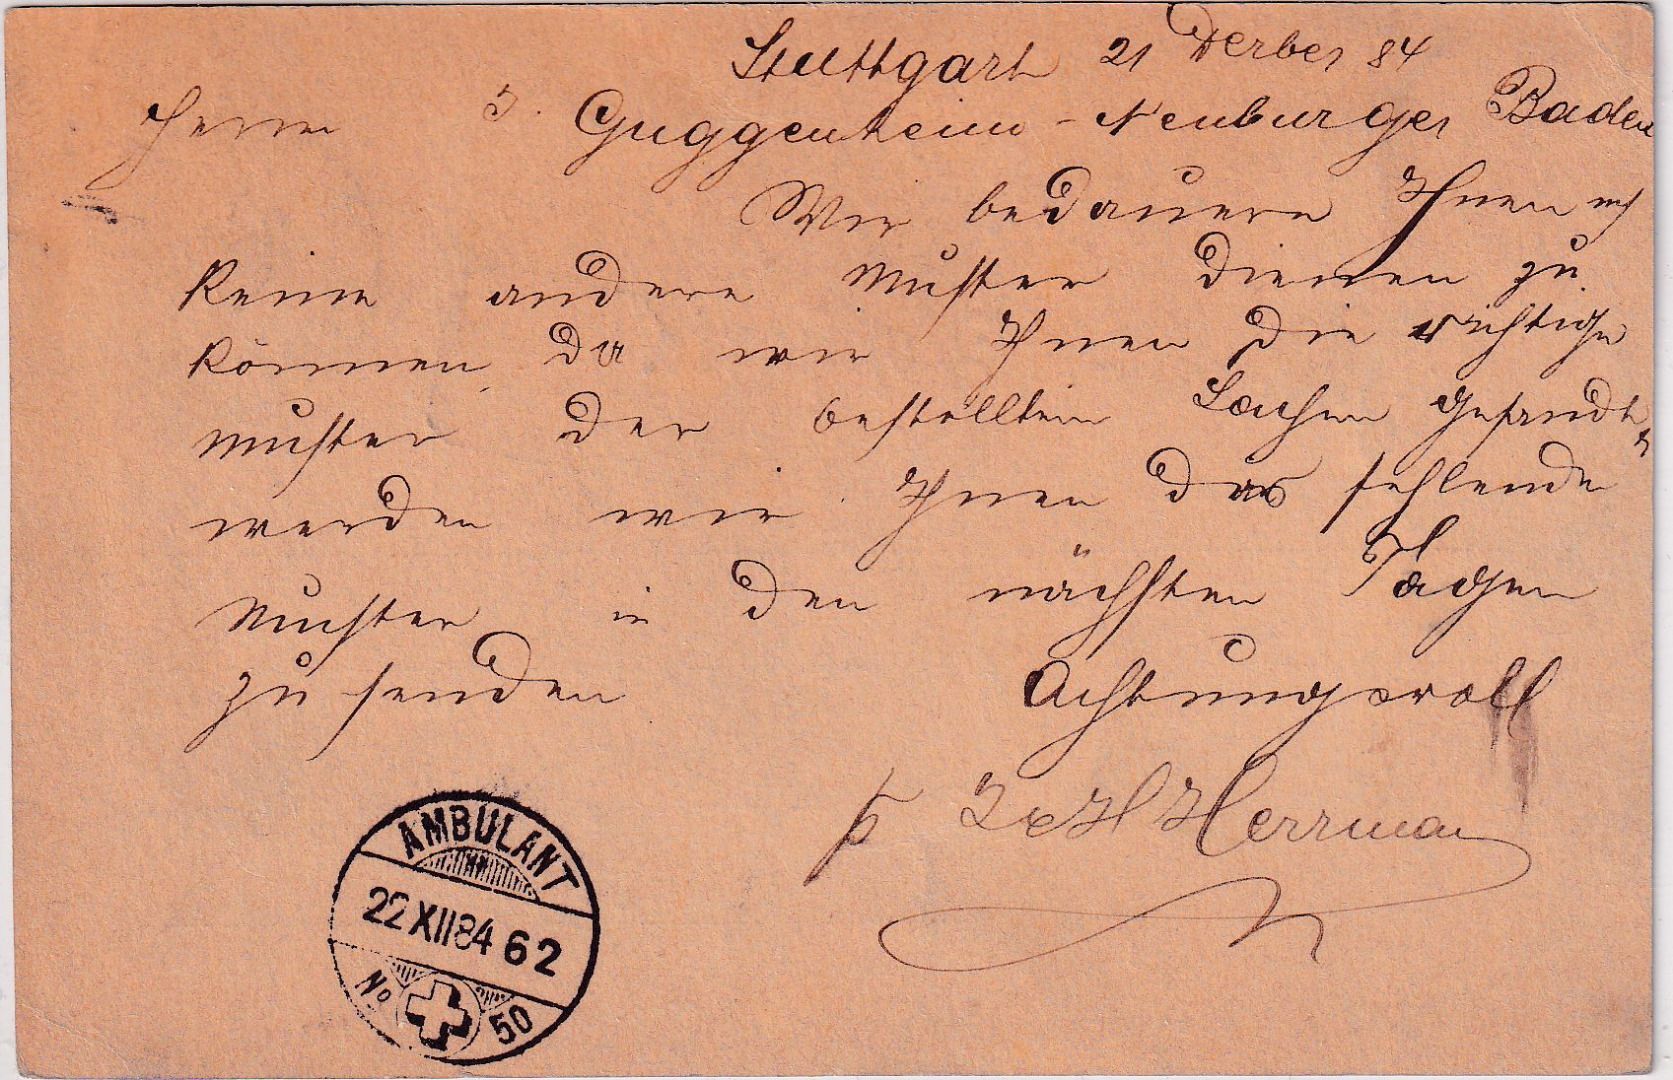 Stuttgart 21 Dezerber 84
Herrn J. Guggenheim-Neuburger Baden
Wir bedauern Ihnen
keine andere Muster dienen zu
können, da wir Ihnen die richtige
Muster der bestellten Sachen gesandt,
werden wir Ihnen das fehlende
Muster in den nächsten Tagen
zu senden
Achtungsvoll
p Herrman
AMBULANT
22 XII 84 62
No 50